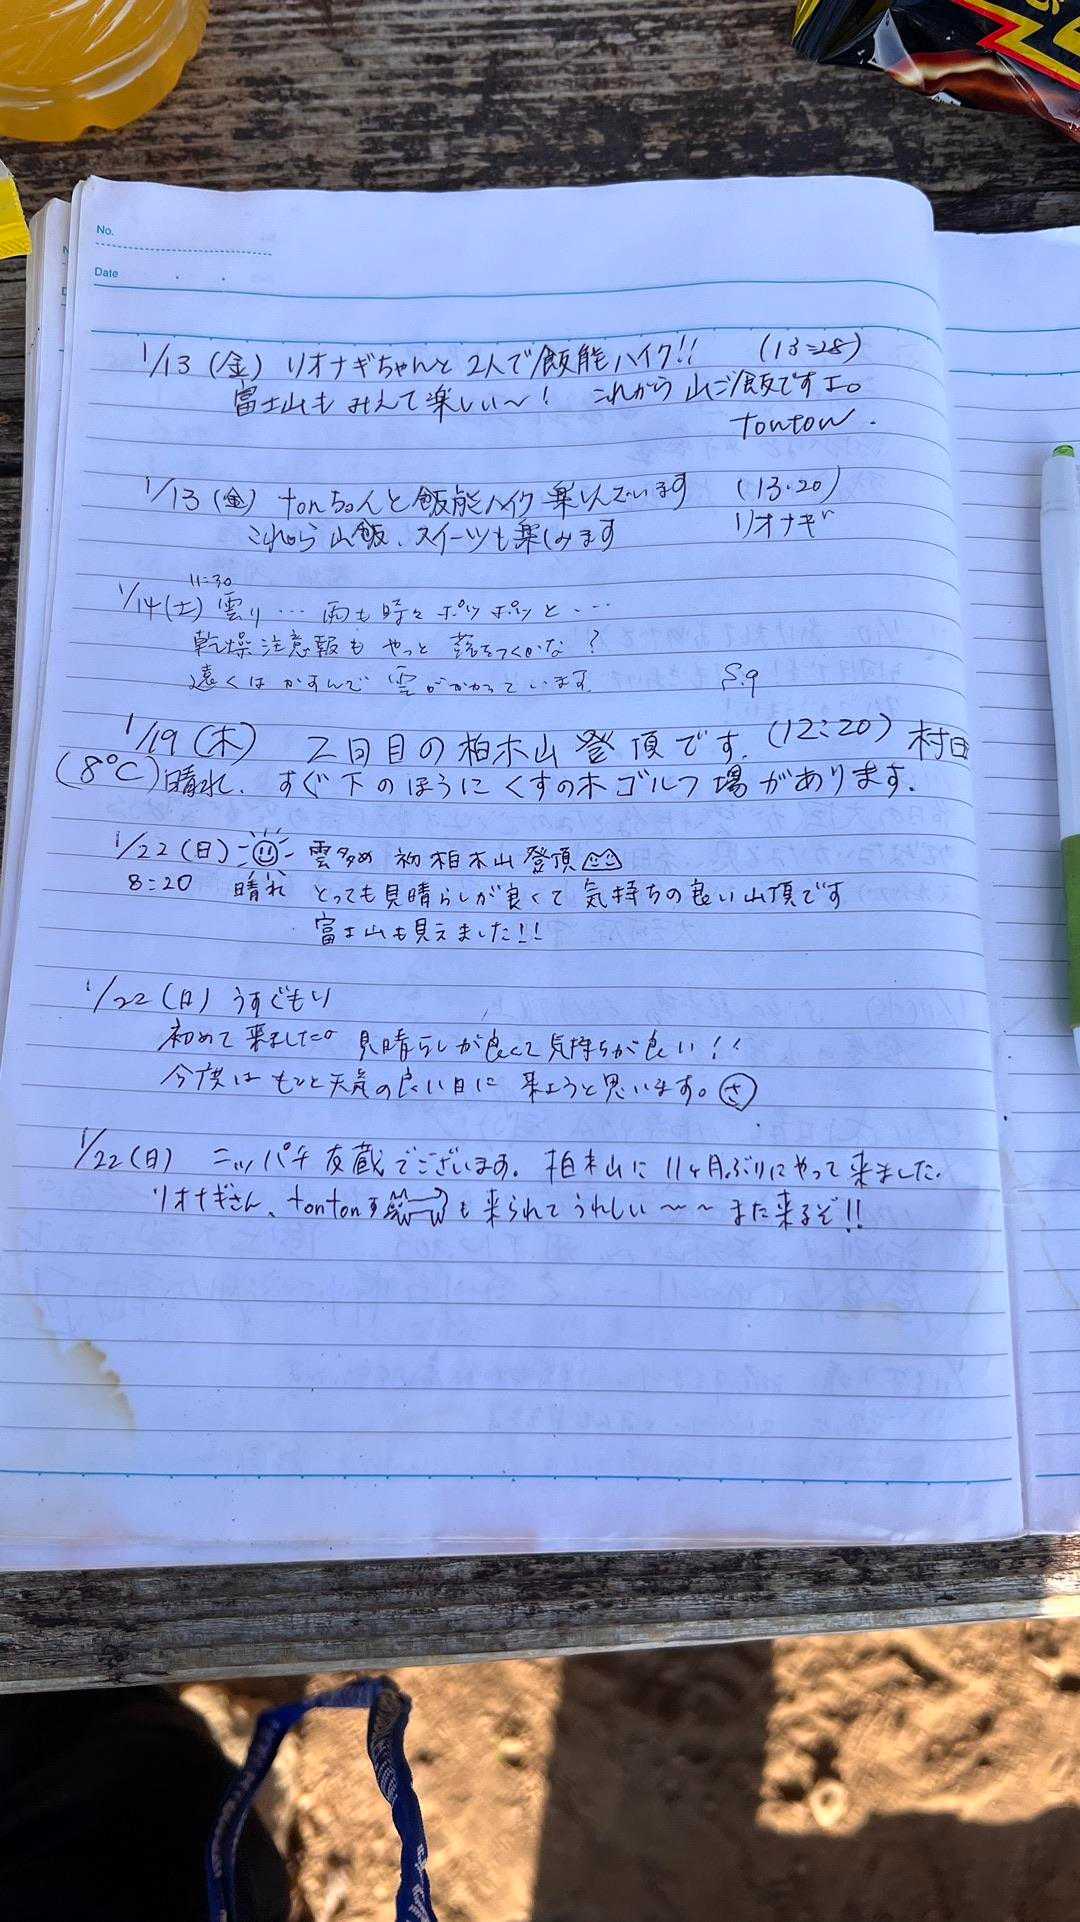 No.
Date
1/13 (金) リオナギちゃんと2人で飯能ハイク!! (13:28)
富士山もみえて楽しい〜! これから山ご飯ですよ。
tonton.
1/13 (金) tonちゃんと飯能ハイク楽しんでいます (13.20)
これから山飯、スイーツも楽しみます リオナギ
11:30
1/14(土) 雲り… 雨も時々ポツポツと…
乾燥注意報もやっと落ちつくかな?
遠くはかすんで雲がかかっています S.9
1/19 (木) 2回目の柏木山登頂です. (12:20) 村田
(8℃)晴れ. すぐ下のほうにくすの木ゴルフ場があります.
1/22 (日) 雲多め 初柏木山登頂
8:20 晴れ とっても見晴らしが良くて気持ちの良い山頂です
富士山も見えました!!
1/22 (日) うすぐもり
初めて来ました。見晴らしが良くて気持ちが良い!!
今度はもっと天気の良い日に来ようと思います。さ
1/22 (日) ニッパチ友蔵でございます. 柏木山に11ヶ月ぶりにやって来ました.
リオナギさん、tontonさんも来られてうれしい〜〜また来るぞ!!